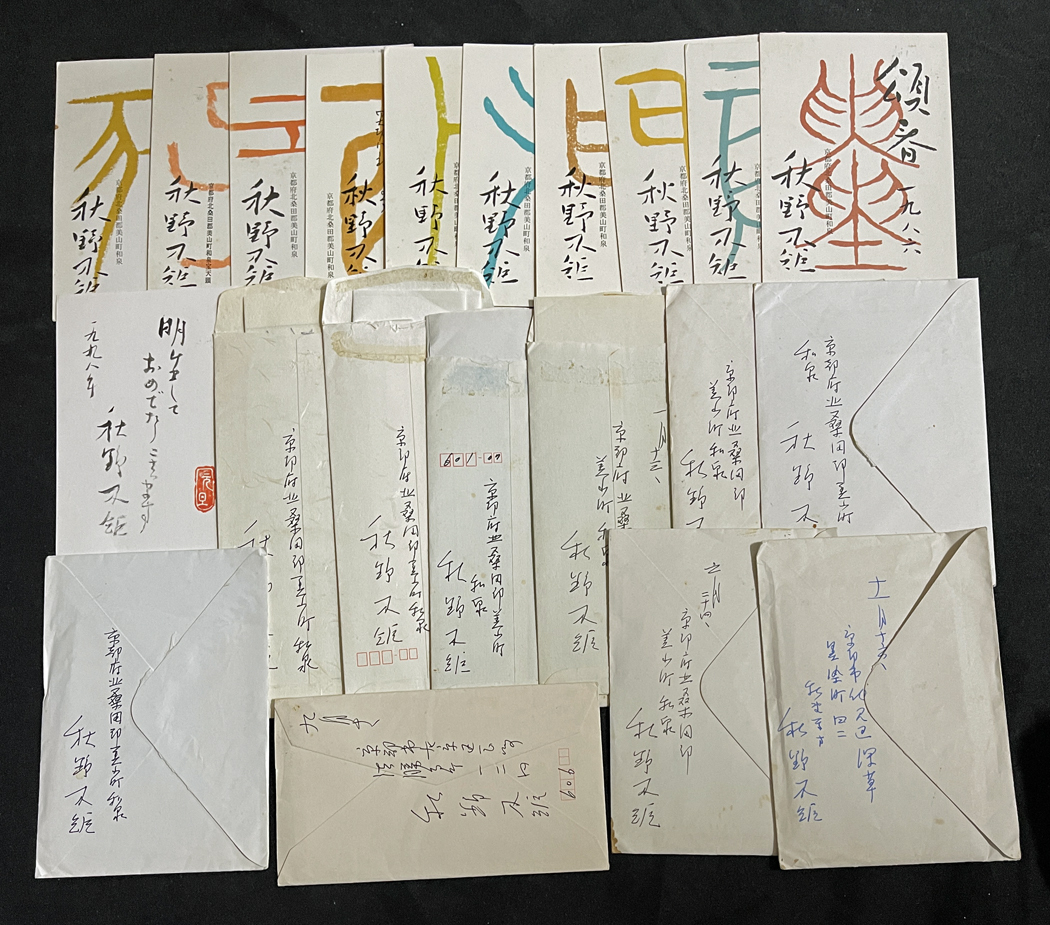 秋野不矩
京都府北桑田郡美山町和泉
秋野不矩
秋野不矩
京都府北桑田郡美山町和泉
秋野不矩
京都府北桑田郡美山町和泉
秋野不矩
京都府北桑田郡美山町和泉
秋野不矩
京都府北桑田郡美山町和泉
秋野不矩
京都府北桑田郡美山町和泉
日
秋野不矩
京都府北桑田郡美山町和泉
秋野不矩
頌春
一九八六
京都府北桑田郡美山町和泉
秋野不矩
明けまして
おめでとうございます
一九九八年
秋野不矩
元旦
京都府北桑田郡美山町和泉
秋
京都府北桑田郡美山町和泉
秋野不矩
601-07
京都府北桑田郡美山町
和泉
秋野不矩
一月十三日
京都府北桑田郡
美山町和泉
秋野不矩
京都府北桑田郡
美山町和泉
秋野不
京都府北桑田郡美山町
和泉
秋野不
京都府北桑田郡美山町和泉
秋野不矩
606
京都市左京区
秋野不矩
三月二十四日
京都府北桑田郡
美山町和泉
秋野不矩
十一月十六日
京都市伏見区深草
秋野不矩